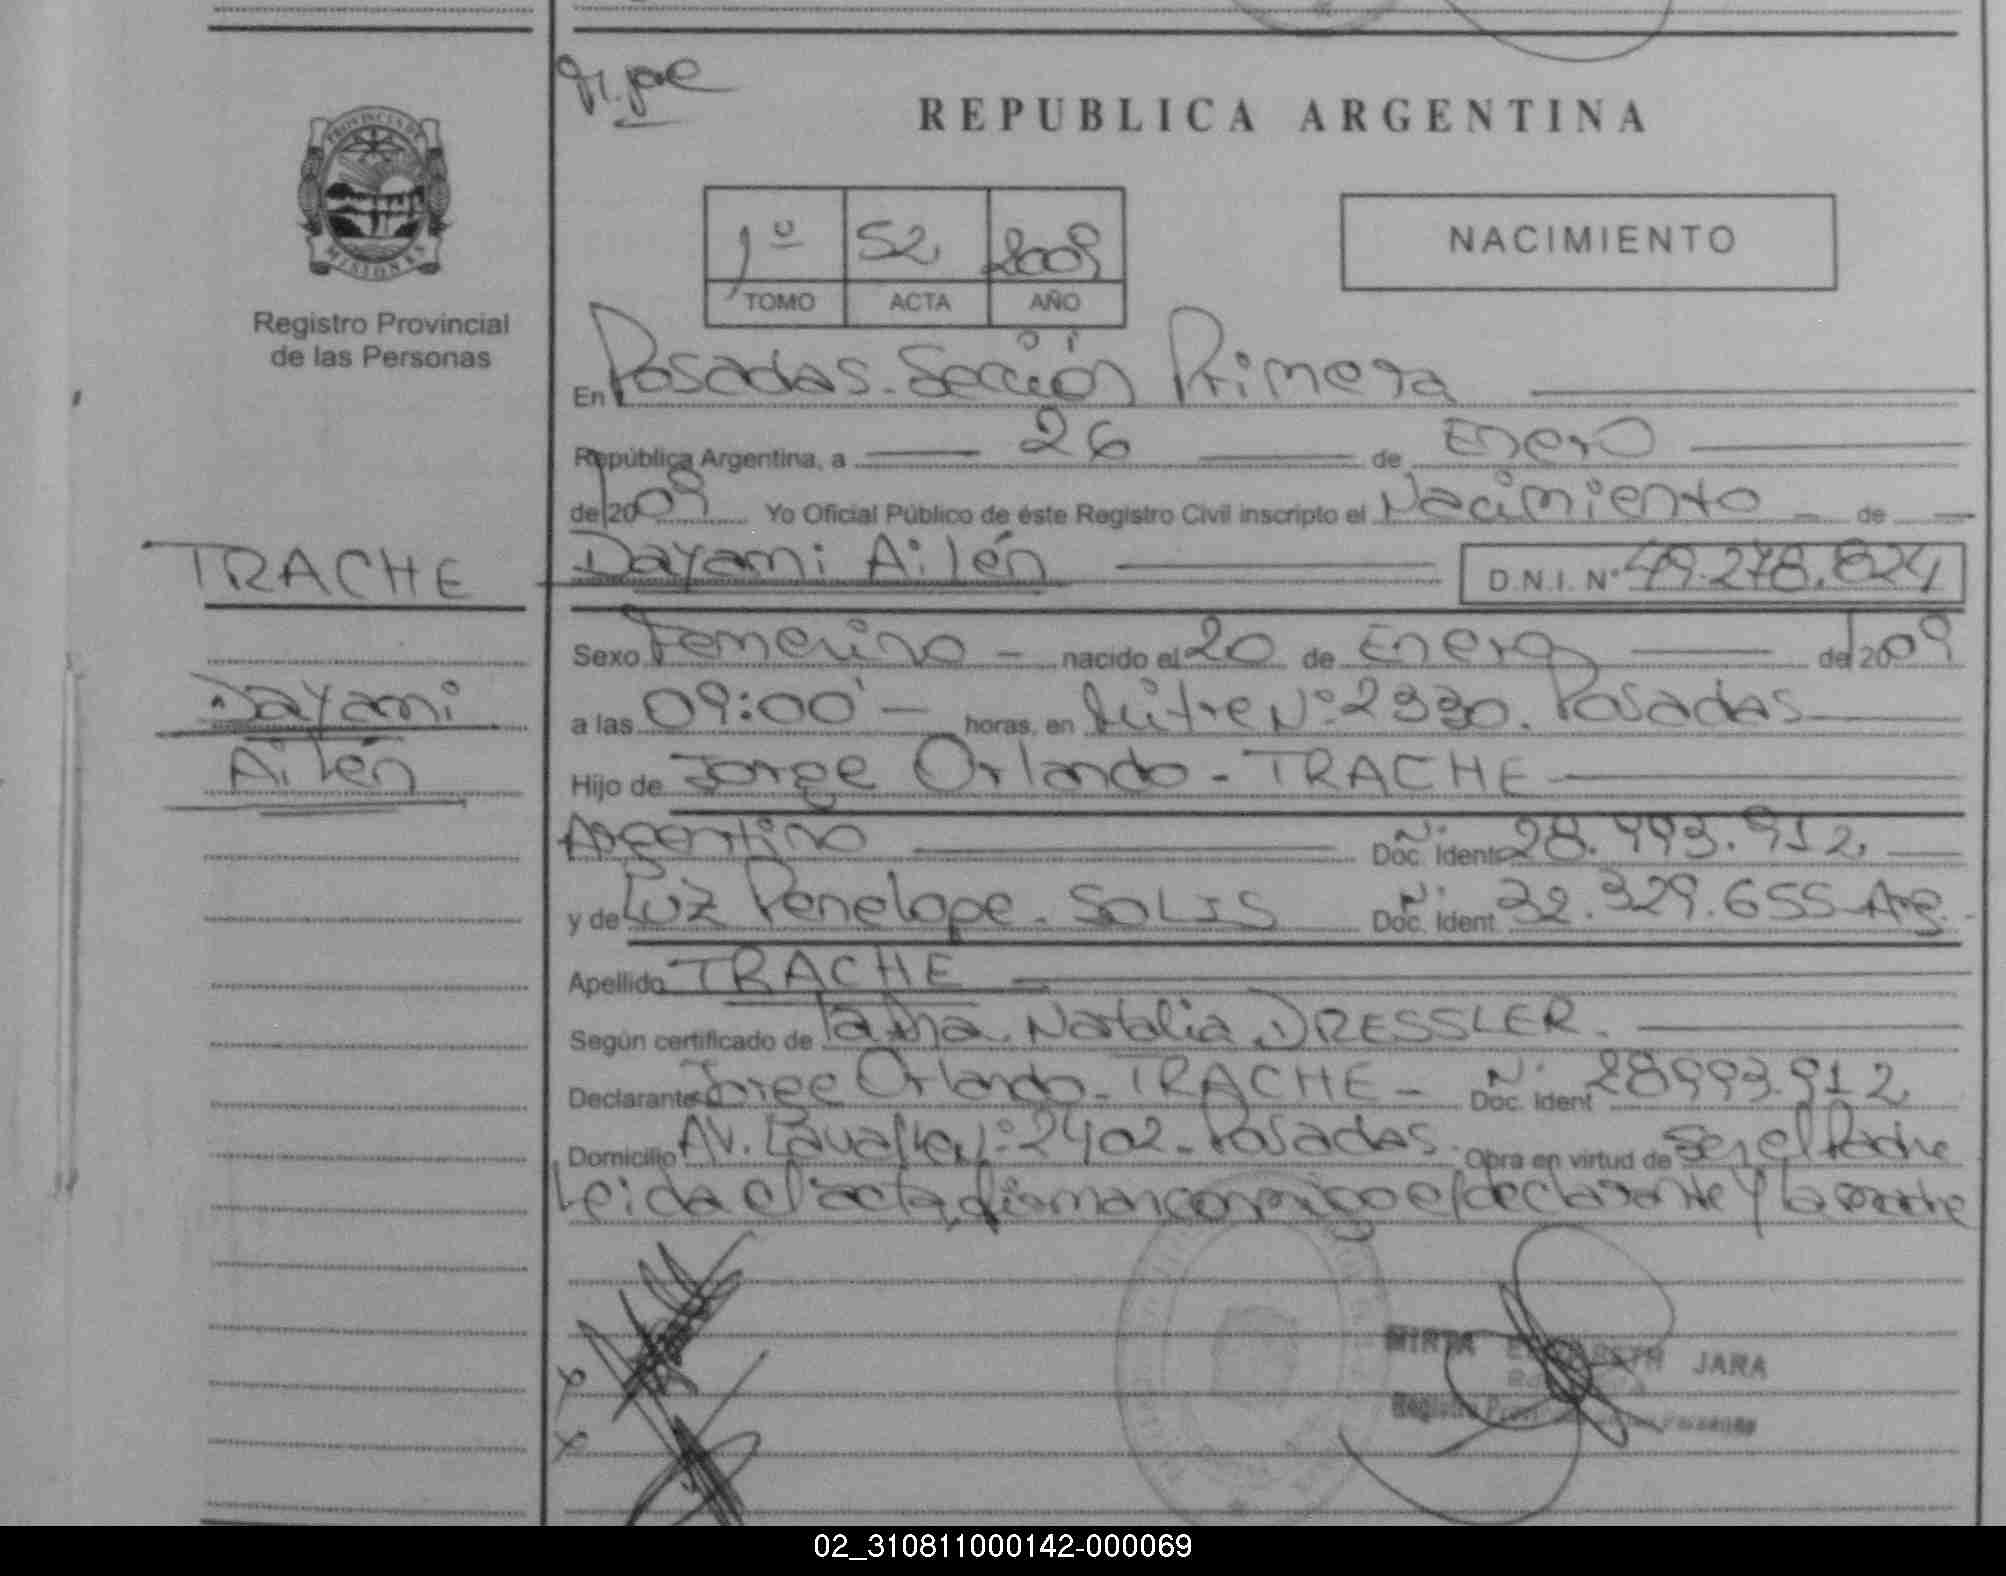 REPUBLICA ARGENTINA
PROVINCIA DE
MISIONES
Registro Provincial
de las Personas
1º 52 2009
TOMO ACTA AÑO
NACIMIENTO
En Posadas. Sección Primera
República Argentina, a 26 de Enero
de 2009 Yo Oficial Público de éste Registro Civil inscripto el Nacimiento de
TRACHE
Dayami Ailén
D.N.I. Nº 49.278.824
Sexo Femenino - nacido el 20 de Enero de 2009
Dayami
Ailén
a las 09:00 - horas, en Mitre Nº 2330. Posadas
Hijo de Jorge Orlando - TRACHE
Argentino Nº Doc. Ident 28.993.912.
y de Luz Penelope. SOLIS Nº Doc. Ident. 32.329.655 - Arg.
Apellido TRACHE
Según certificado de Natalia DRESSLER.
Declarante Jorge Orlando - TRACHE - Nº Doc. Ident 28993.912
Domicilio AV. Nº 2402 - Posadas. Obra en virtud de Ser el Padre
Leida el acta, firman conmigo el declarante y la madre
x
x
MIRTA ELIZABETH JARA
Registro Provincial de las Personas
02_310811000142-000069